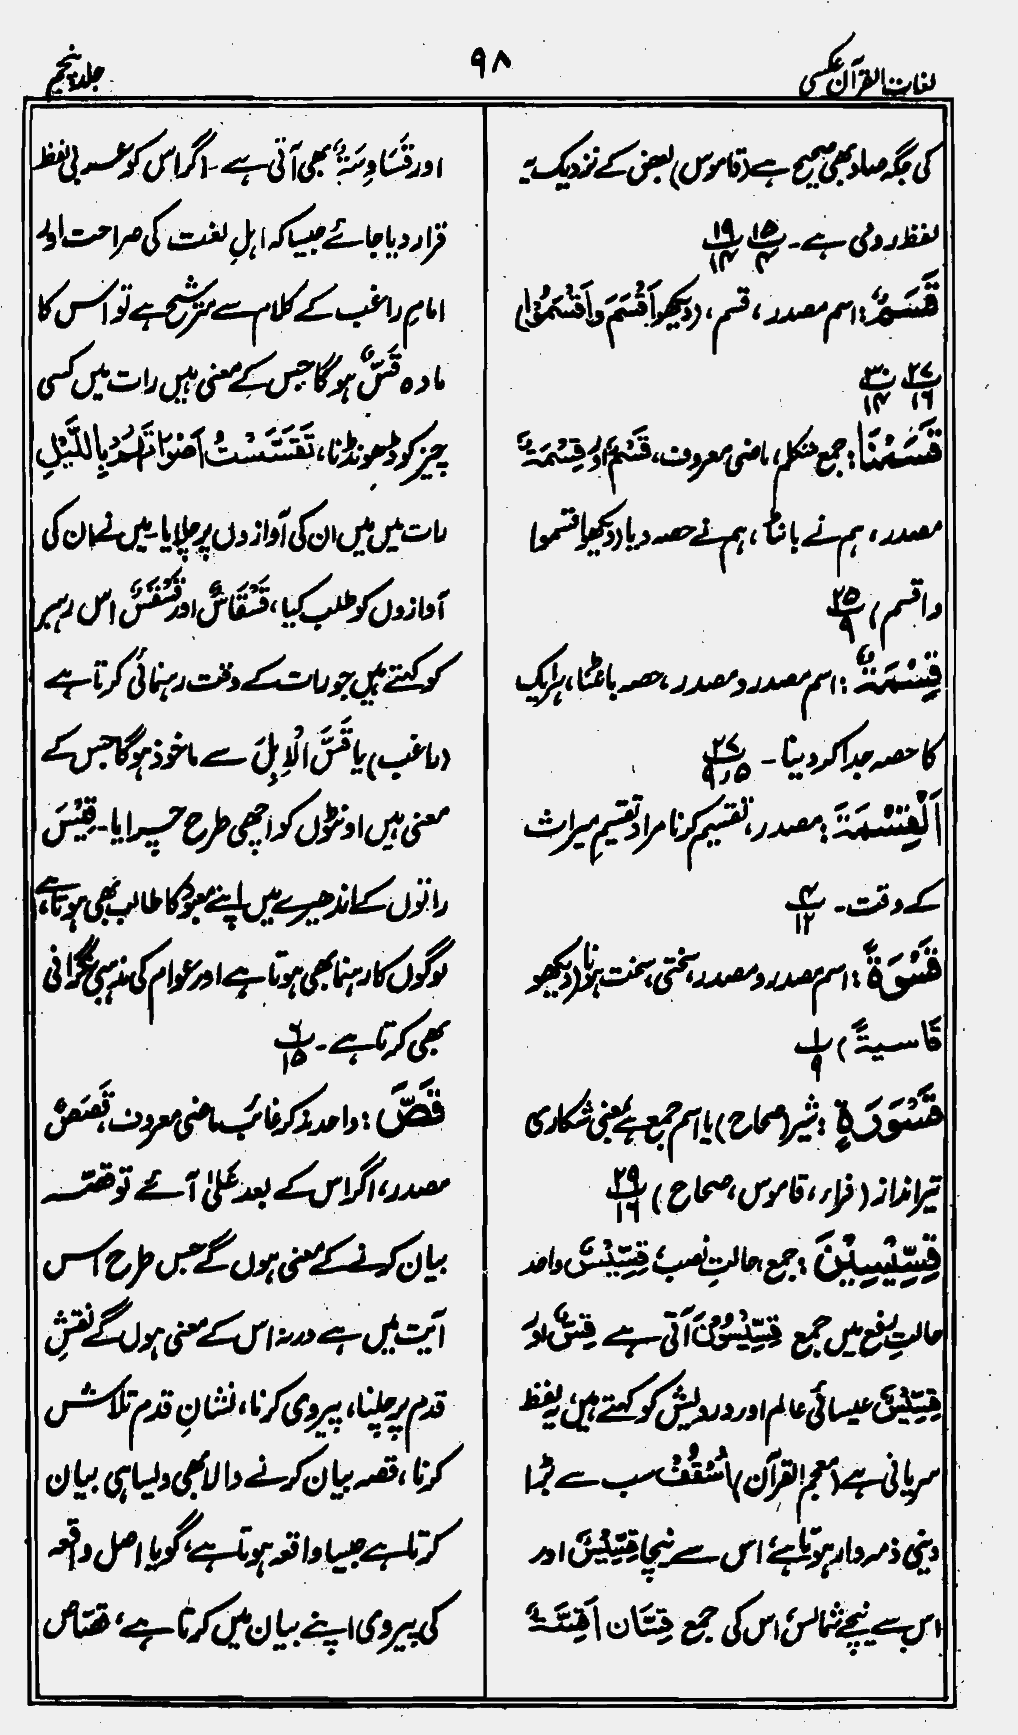 لغات القرآن عکسی
۹۸
جلد پنجم
کی جگہ صاد بھی صحیح ہے (قاموس) بعض کے نزدیک یہ
لفظ رومی ہے۔ ۱۵/۴ ۱۹/۱۴
قَسَمٌ: اسم مصدر، قسم، (دیکھو اَقْسَمَ وَاَقْسَمُوْا)
۲۷/۱۶ ۳۰/۱۴
قَسَمْنَا: جمع متکلم، ماضی معروف، قَسْمٌ اور قِسْمَةٌ
مصدر، ہم نے بانٹا، ہم نے حصہ دیا (دیکھو اقسموا
واقسم) ۲۵/۹
قِسْمَةٌ: اسم مصدر و مصدر، حصہ بانٹنا، ہر ایک
کا حصہ جدا کر دینا۔ ۲۷/۹،۵
اَلْقِسْمَةَ: مصدر، تقسیم کرنا مراد تقسیمِ میراث
کے وقت۔ ۴/۱۲
قَسْوَةً: اسم مصدر و مصدر، سختی، سخت ہونا (دیکھو
قَاسیةً) ۱/۹
قَسْوَرَةٍ: شیر (صحاح) یا اسم جمع ہے بمعنی شکاری
تیر انداز (فراء، قاموس، صحاح) ۲۹/۱۶
قِسِّیْسِیْنَ: جمع، حالتِ نصب، قِسِّیْسٌ واحد
حالتِ رفع میں جمع قِسِّیْسُوْنَ آتی ہے قِسٌّ اور
قِسِّیْسٌ عیسائی عالم اور درویش کو کہتے ہیں، یہ لفظ
سریانی ہے (معجم القرآن) اُسْقُفْ سب سے بڑا
دینی ذمہ دار ہوتا ہے، اس سے نیچا قِسِّیْسٌ اور
اس سے نیچے شماس، اس کی جمع قِسَّان اَقِسَّةٌ
اور قَسَاوِسَةٌ بھی آتی ہے۔ اگر اس کو عربی لفظ
قرار دیا جائے جیسا کہ اہلِ لغت کی صراحت اور
امام راغب کے کلام سے مترشح ہے تو اس کا
مادہ قَسٌّ ہوگا جس کے معنی ہیں رات میں کسی
چیز کو ڈھونڈنا، تَقَسَّسْتُ اَصْوَاتَهُمْ بِاللَّیْلِ
رات میں میں ان کی آوازوں پر چلا یا۔ میں نے ان کی
آوازوں کو طلب کیا، قَسْقَاسٌ اور قَسْقَسٌ اس رہبر
کو کہتے ہیں جو رات کے وقت رہنمائی کرتا ہے
(راغب) یا قَسَّ الْاِبِلَ سے ماخوذ ہوگا جس کے
معنی ہیں اونٹوں کو اچھی طرح چرایا۔ قِسِّیْسَ
راتوں کے اندھیرے میں اپنے معبود کا طالب بھی ہوتا ہے،
لوگوں کا رہنما بھی ہوتا ہے اور عوام کی مذہبی نگرانی
بھی کرتا ہے۔ ۶/۱۵
قَصَّ: واحد مذکر غائب ماضی معروف، قَصَصٌ
مصدر، اگر اس کے بعد عَلٰی آئے تو قصہ
بیان کرنے کے معنی ہوں گے جس طرح اس
آیت میں ہے ورنہ اس کے معنی ہوں گے نقشِ
قدم پر چلنا، پیروی کرنا، نشانِ قدم تلاش
کرنا، قصہ بیان کرنے والا بھی ویسا ہی بیان
کرتا ہے جیسا واقعہ ہوتا ہے، گویا اصل واقعہ
کی پیروی اپنے بیان میں کرتا ہے، قصّاص